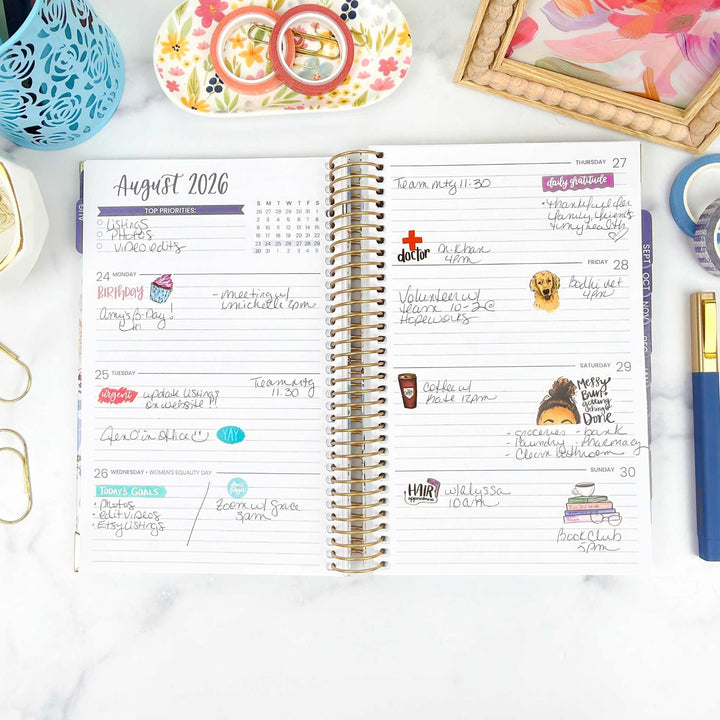 August 2026
TOP PRIORITIES:
Listings
Photos
Video edits
S M T W T F S
26 27 28 29 30 31 1
2 3 4 5 6 7 8
9 10 11 12 13 14 15
16 17 18 19 20 21 22
23 24 25 26 27 28 29
30 31
24 MONDAY
BIRTHDAY
Amy's B-Day!
- meeting w/
michelle 2pm
25 TUESDAY
urgent
update listings
on website!!
Team mtg
11:30
Jen O' in office
YAY
26 WEDNESDAY • WOMEN'S EQUALITY DAY
TODAY'S GOALS
• Photos
• edit videos
• Etsy listings
Zoom w/ Grace
3pm
THURSDAY 27
Team mtg 11:30
daily gratitude
• thankful for
family, friends
& my health
doctor
Dr. Khan
4pm
FRIDAY 28
Volunteer w/
team 10-2 @
Hopeworks
Bodhi vet
4pm
SATURDAY 29
coffee w/
Kate 12pm
MESSY
Bun
getting
things
DONE
- groceries - bank
- laundry - Pharmacy
- Clean bathroom
SUNDAY 30
HAIR
appointment
w/ Alyssa
10am
Book Club
5pm
AUG
SEPT
OCT
NOV
DEC